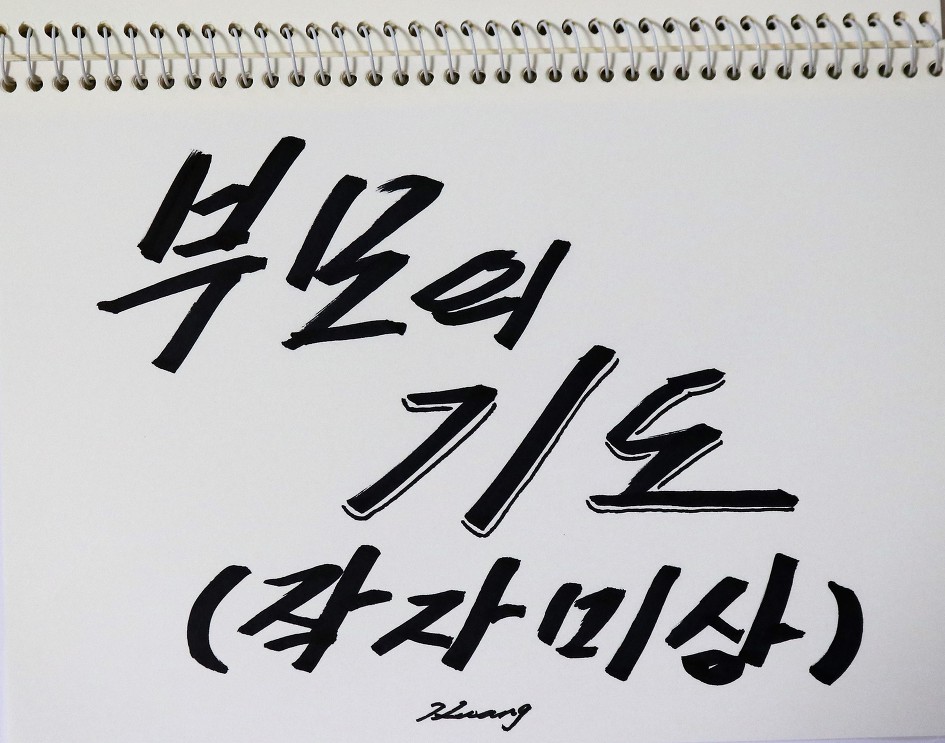 부모의
기도
(작자미상)
Hwang